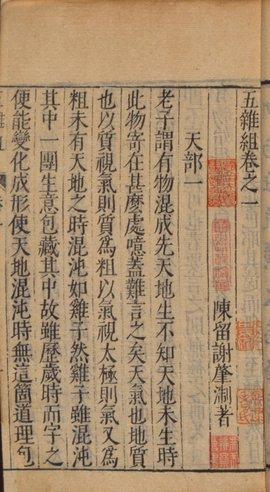 五雜組卷之一
陳留謝肇淛著
天部一
老子謂有物混成先天地生不知天地未生時
此物寄在甚麼處噫蓋難言之矣天氣也地質
也以質視氣則質為粗以氣視太極則氣又為
粗未有天地之時混沌如雞子然雞子雖混沌
其中一團生意包藏其中故雖歷歲時而字之
便能變化成形使天地混沌時無這箇道理包